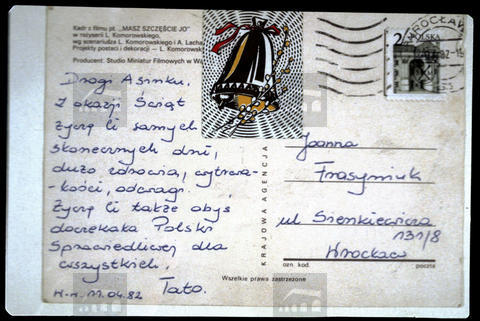 Kadr z filmu pt. „MASZ SZCZĘŚCIE JO"
w reżyserii L. Komorowskiego,
wg scenariusza L. Komorowskiego i A. Lacha
Projekty postaci i dekoracji – L. Komorowski
Producent: Studio Miniatur Filmowych w
WROCŁAW
2
POLSKA
Drogi Asinku.
Z okazji Świąt
życzę Ci samych
słonecznych dni,
dużo zdrowia, wytrwa-
-łości, odwagi.
Życzę Ci także abyś
doczekała Polski
Sprawiedliwej dla
wszystkich,
Tato.
11.04.82
KRAJOWA AGENCJA
Joanna
Frasyniuk
ul Sienkiewicza
131/8
Wrocław
ozn. kod. poczta
Wszelkie prawa zastrzeżone